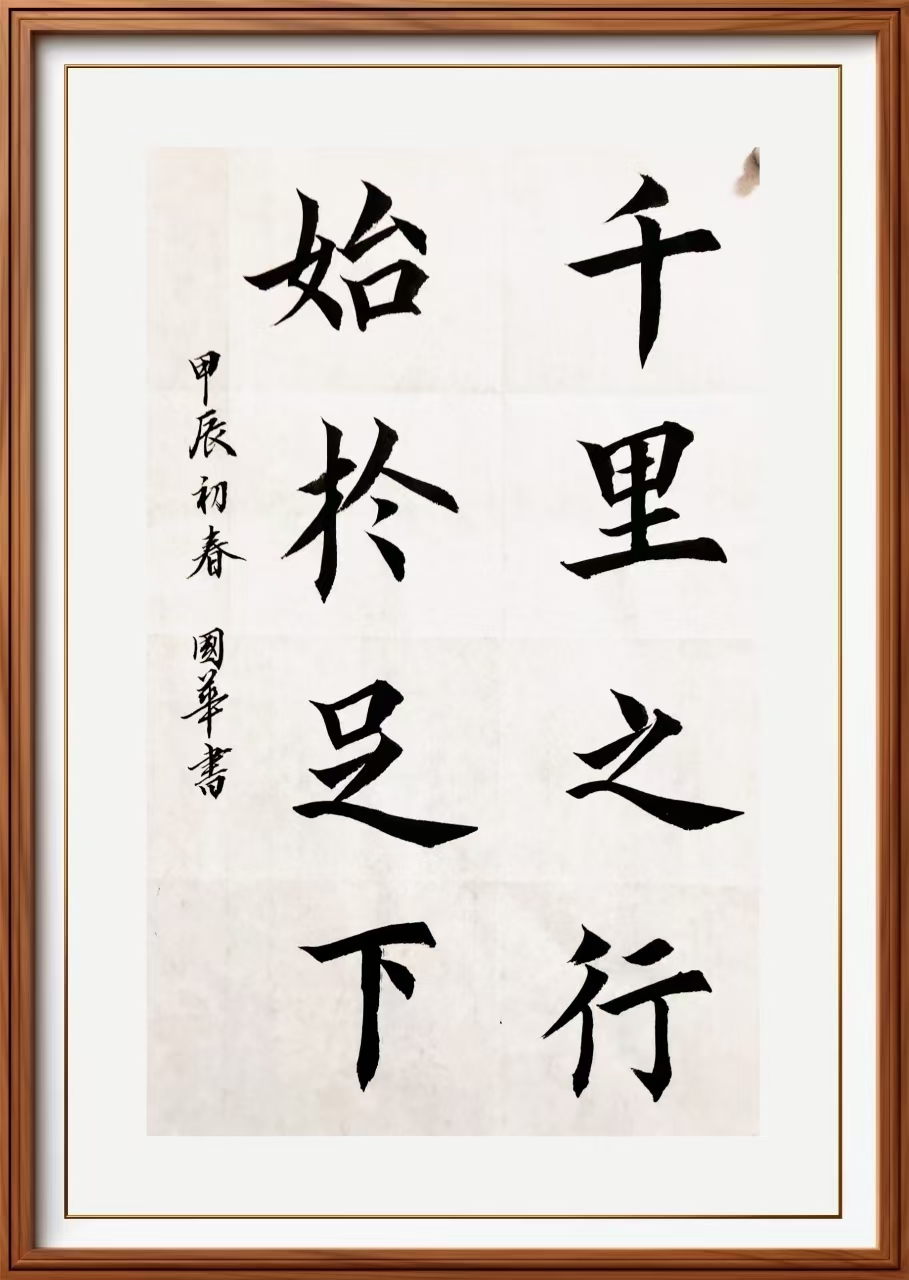 千里之行
始於足下
甲辰初春 國華書